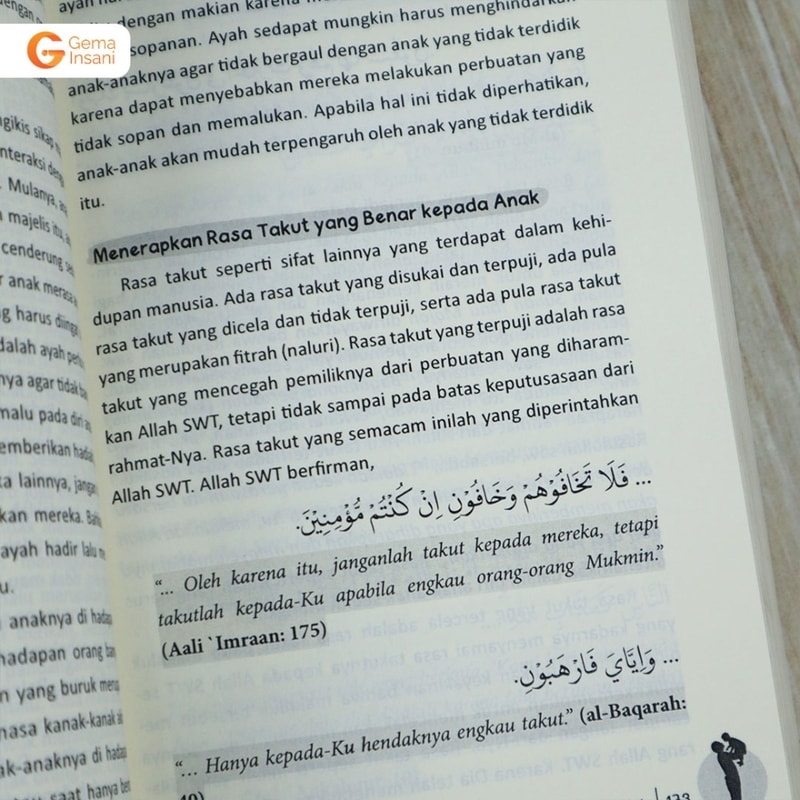 Gema
Insani
ayah har
dengan makian karena
sopanan. Ayah sedapat mungkin harus menghindarkan
anak-anaknya agar tidak bergaul dengan anak yang tidak terdidik
karena dapat menyebabkan mereka melakukan perbuatan yang
tidak sopan dan memalukan. Apabila hal ini tidak diperhatikan,
anak-anak akan mudah terpengaruh oleh anak yang tidak terdidik
itu.
Menerapkan Rasa Takut yang Benar kepada Anak
Rasa takut seperti sifat lainnya yang terdapat dalam kehi-
dupan manusia. Ada rasa takut yang disukai dan terpuji, ada pula
rasa takut yang dicela dan tidak terpuji, serta ada pula rasa takut
yang merupakan fitrah (naluri). Rasa takut yang terpuji adalah rasa
takut yang mencegah pemiliknya dari perbuatan yang diharam-
kan Allah SWT, tetapi tidak sampai pada batas keputusasaan dari
rahmat-Nya. Rasa takut yang semacam inilah yang diperintahkan
Allah SWT. Allah SWT berfirman,
... فَلَا تَخَافُوْهُمْ وَخَافُوْنِ اِنْ كُنْتُمْ مُّؤْمِنِيْنَ.
“... Oleh karena itu, janganlah takut kepada mereka, tetapi
takutlah kepada-Ku apabila engkau orang-orang Mukmin.”
(Aali `Imraan: 175)
... وَاِيَّايَ فَارْهَبُوْنِ.
“... Hanya kepada-Ku hendaknya engkau takut.” (al-Baqarah:
40)
gikis sikap
nteraksi
. Mulanya,
majelis itu,
cenderung
r anak merasa
g harus
dalah ayah
nya agar tidak
malu pada diri
emberikan
ta lainnya,
kan mereka.
ayah hadir lalu
u.
anaknya di
hadapan orang
n yang buruk
nasa kanak-kanak
ak-anaknya di
saat hanya